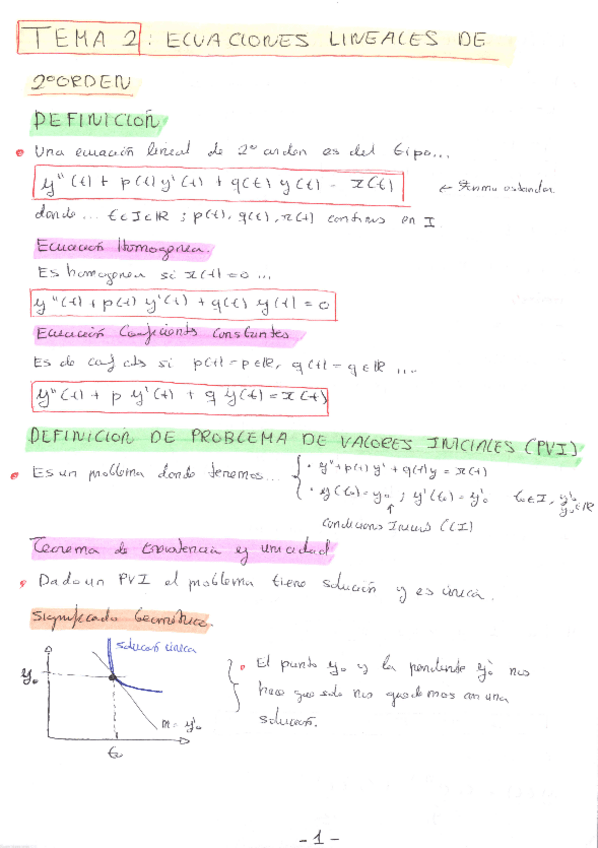 TEMA 2: ECUACIONES LINEALES DE
2º ORDEN
DEFINICIÓN
Una ecuación lineal de 2º orden es del tipo...
y''(t) + p(t) y'(t) + q(t) y(t) = r(t) ← Forma estándar
donde ... t∈I⊂ℝ ; p(t), q(t), r(t) continuas en I
Ecuación Homogénea.
Es homogénea si r(t)=0 ...
y''(t) + p(t) y'(t) + q(t) y(t) = 0
Ecuación Coeficients Constantes
Es de coef cts si p(t)=p∈ℝ, q(t)=q∈ℝ ...
y''(t) + p y'(t) + q y(t) = r(t)
DEFINICIÓN DE PROBLEMA DE VALORES INICIALES (PVI)
Es un problema donde tenemos...
y''+p(t) y' + q(t) y = r(t)
y(t₀)=y₀ ; y'(t₀)=y'₀ t₀∈I, y₀, y'₀∈ℝ
↑
Condicions Inicials (CI)
Teorema de Existencia y unicidad
Dado un PVI el problema tiene solución y es única.
Significado Geométrico.
solución única
y₀
m = y'₀
t₀
El punto y₀ y la pendiente y'₀ nos
hace que solo nos quedemos con una
solución.
- 1 -